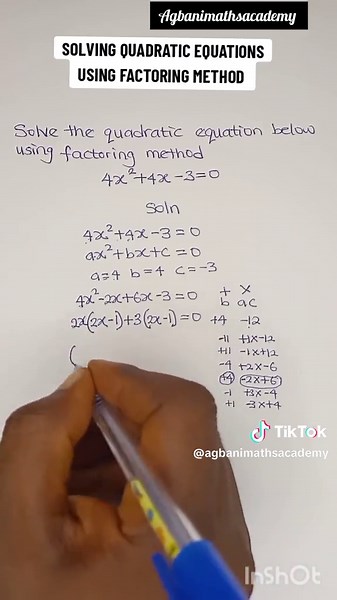 Agbanimathsacademy
SOLVING QUADRATIC EQUATIONS
USING FACTORING METHOD
Solve the quadratic equation below
using factoring method
4x²+4x-3=0
Soln
4x²+4x-3=0
ax²+bx+c=0
a=4 b=4 c=-3
4x²-2x+6x-3=0
2x(2x-1)+3(2x-1)=0
(
+ x
b ac
+4 -12
-11 +1x-12
+11 -1x+12
-4 +2x-6
+4 -2x+6
-1 +3x-4
+1 -3x+4
TikTok
@agbanimathsacademy
InShOt